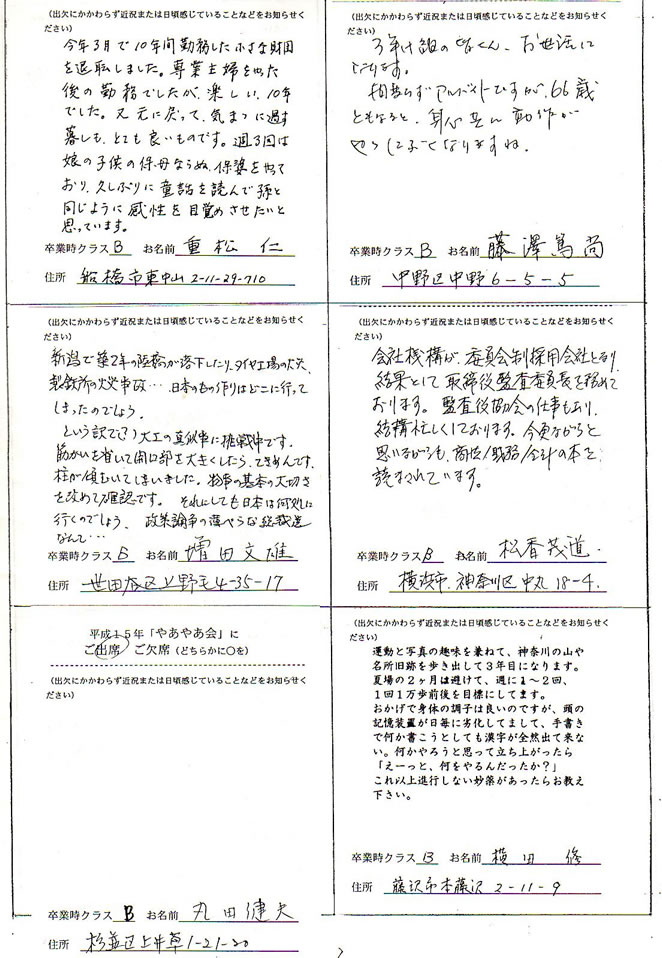 (出欠にかかわらず近況または日頃感じていることなどをお知らせく
ださい)
今年3月で10年間勤務した小さな財団
を退職しました。専業主婦をやった
後の勤務でしたが、楽しい10年
でした。又元に戻って、気ままに過す
暮しも、とても良いものです。週3回は
娘の子供の保母ならぬ、保婆をやって
おり、久しぶりに童話を読んで孫と
同じように感性を目覚めさせたいと
思っています。
卒業時クラス B お名前 重松 仁
住所 船橋市東中山 2-11-29-710
(出欠にかかわらず近況または日頃感じていることなどをお知らせく
ださい)
お世話に
なります。
相変らずアルバイトですが、66歳
ともなると、身心共に動作が
にぶくなりますね。
卒業時クラス B お名前 藤澤篤尚
住所 中野区中野 6-5-5
(出欠にかかわらず近況または日頃感じていることなどをお知らせく
ださい)
新潟で築2年の陸橋が落下したり、タイヤ工場の火災、
製鉄所の火災事故… 日本のもの作りはどこに行って
しまったのでしょう。
という訳で(?)大工の真似事に挑戦中です。
筋かいを省いて開口部を大きくしたら、てきめんです。
柱が傾むいてしまいました。物事の基本の大切さ
を改めて確認です。 それにしても日本は何処に
行くのでしょう、 政策論争の薄べらな総裁選
なんて…
卒業時クラス B お名前 増田文雄
住所 世田谷区上野毛4-35-17
(出欠にかかわらず近況または日頃感じていることなどをお知らせく
ださい)
会社機構が、委員会制採用会社となり、
結果として取締役監査委員長を務めて
おります。監査役協会の仕事もあり、
結構忙しくしております。今更ながらと
思いながらも、商法/税務/会計の本を
読まされています。
卒業時クラス B お名前 松香茂道
住所 横浜市 神奈川区中丸 18-4
平成15年「やあやあ会」に
ご出席 ご欠席(どちらかに○を)
(出欠にかかわらず近況または日頃感じていることなどをお知らせく
ださい)
卒業時クラス B お名前 丸田健夫
住所 杉並区上井草1-21-20
(出欠にかかわらず近況または日頃感じていることなどをお知らせく
ださい)
運動と写真の趣味を兼ねて、神奈川の山や
名所旧跡を歩き出して3年目になります。
夏場の2ヶ月は避けて、週に1~2回、
1回1万歩前後を目標にしてます。
おかげで身体の調子は良いのですが、頭の
記憶装置が日毎に劣化してまして、手書き
で何か書こうとしても漢字が全然出て来な
い。何かやろうと思って立ち上がったら
「えーっと、何をやるんだったか?」
これ以上進行しない妙薬があったらお教え
下さい。
卒業時クラス B お名前 横田 修
住所 藤沢市本藤沢 2-11-9